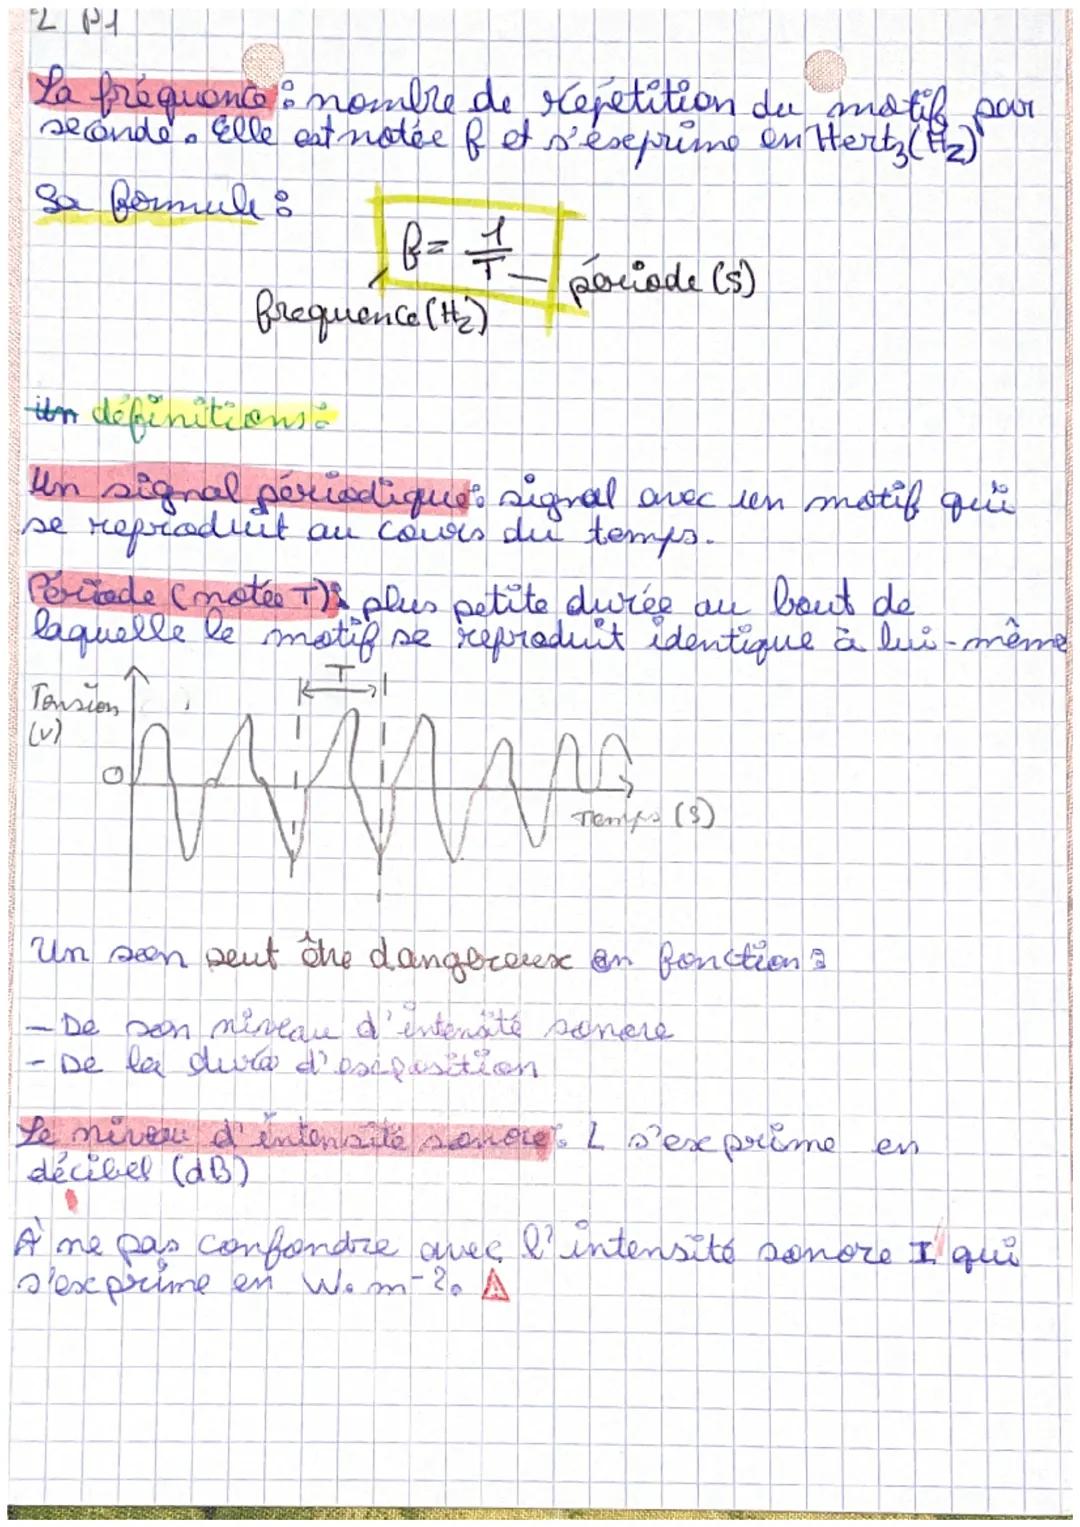 2 P1
La fréquence : nombre de répétition du motif par
seconde. Elle est notée f et s'exprime en Hertz (Hz)
Sa formule :
f = 1/T
période (s)
frequence (Hz)
un définitions :
Un signal périodique : signal avec un motif qui
se reproduit au cours du temps.
Période (notée T) : plus petite durée au bout de
laquelle le motif se reproduit identique à lui-même
T
Tension
(v)
0
Temps (s)
Un son peut être dangereux en fonction :
- De son niveau d'intensité sonore
- De la durée d'exposition
Le niveau d'intensité sonore : L s'exprime en
décibel (dB)
À ne pas confondre avec l'intensité sonore I qui
s'exprime en W.m-2.